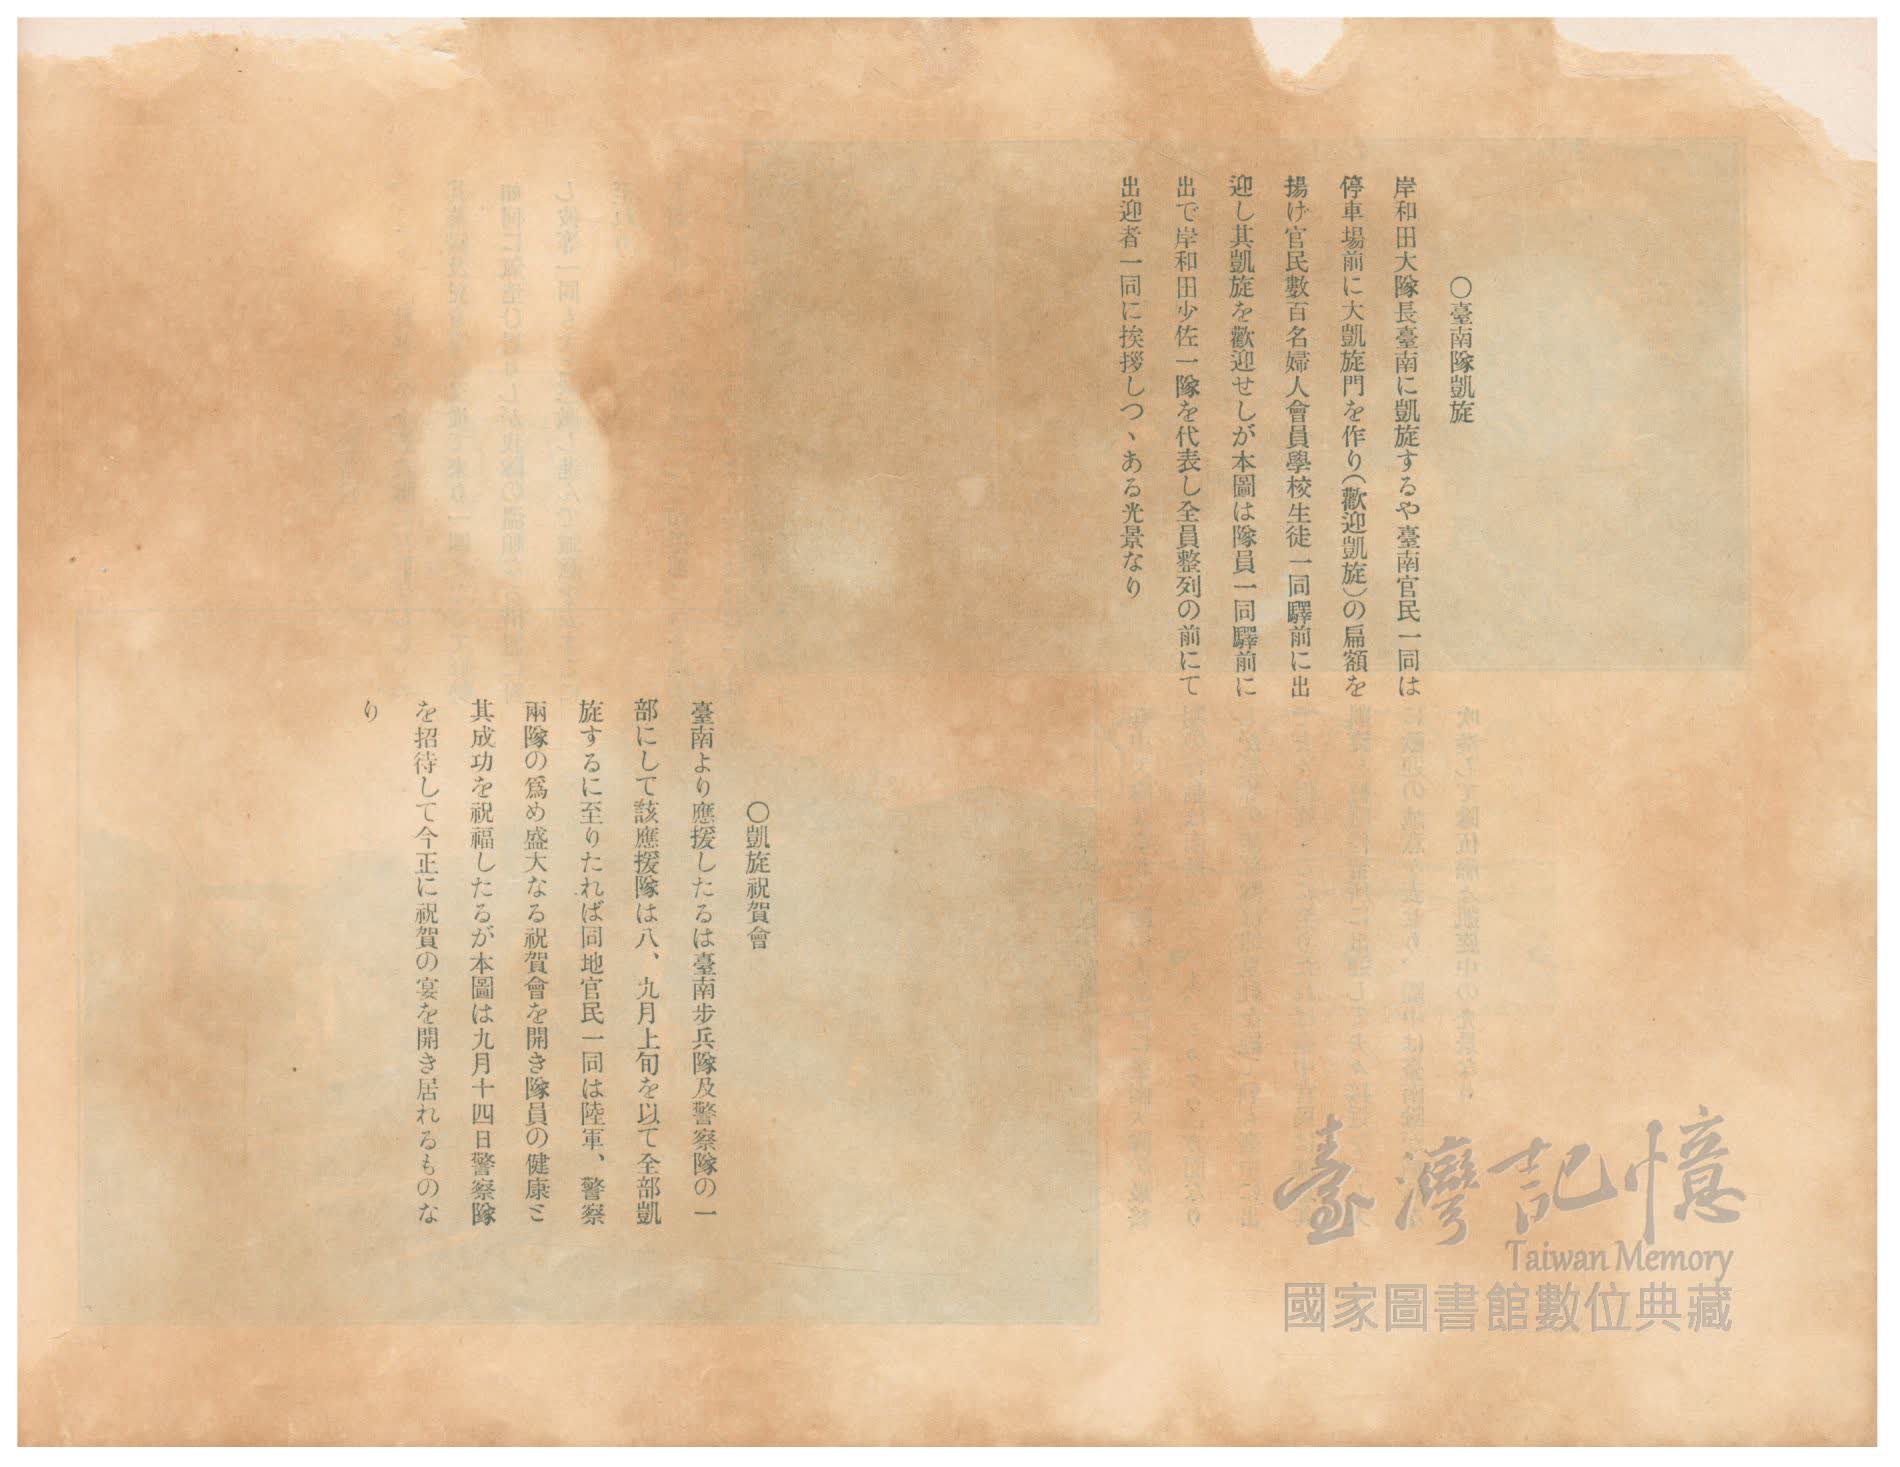 ○臺南隊凱旋
岸和田大隊長臺南に凱旋するや臺南官民一同は
停車場前に大凱旋門を作り(歡迎凱旋)の扁額を
揚げ官民數百名婦人會員學校生徒一同驛前に出
迎し其凱旋を歡迎せしが本圖は隊員一同驛前に
出で岸和田少佐一隊を代表し全員整列の前にて
出迎者一同に挨拶しつヽある光景なり
○凱旋祝賀會
臺南より應援したるは臺南步兵隊及警察隊の一
部にして該應援隊は八、九月上旬を以て全部凱
旋するに至りたれば同地官民一同は陸軍、警察
兩隊の爲め盛大なる祝賀會を開き隊員の健康と
其成功を祝福したるが本圖は九月十四日警察隊
を招待して今正に祝賀の宴を開き居れるものな
り
臺灣記憶
Taiwan Memory
國家圖書館數位典藏